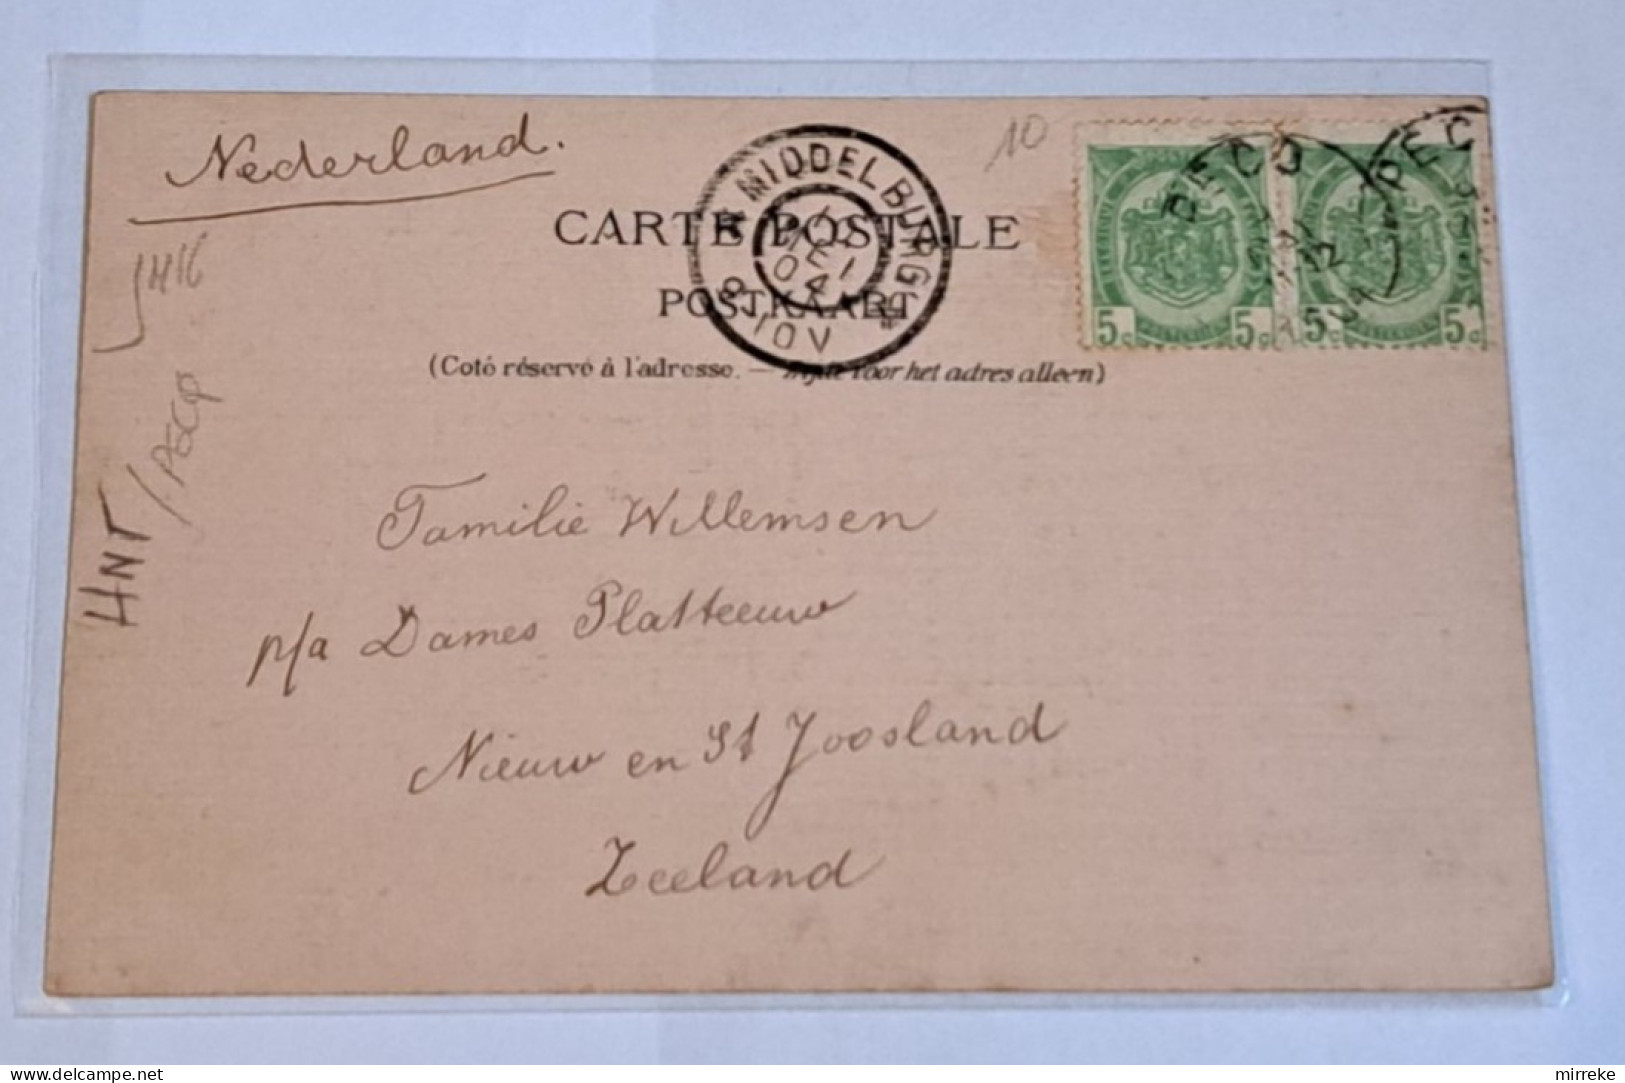 Nederland.
10
MIDDELBURG
CARTE POSTALE
POSTKAART
(Coté réservé à l'adresse. — Zijde voor het adres alleen)
PECQ
PECQ
5c 5c 5c 5c
HNT
Familie Willemsen
p/a Dames Platteeuw
Nieuw en St Joosland
Zeeland
delcampe.net
mirreke